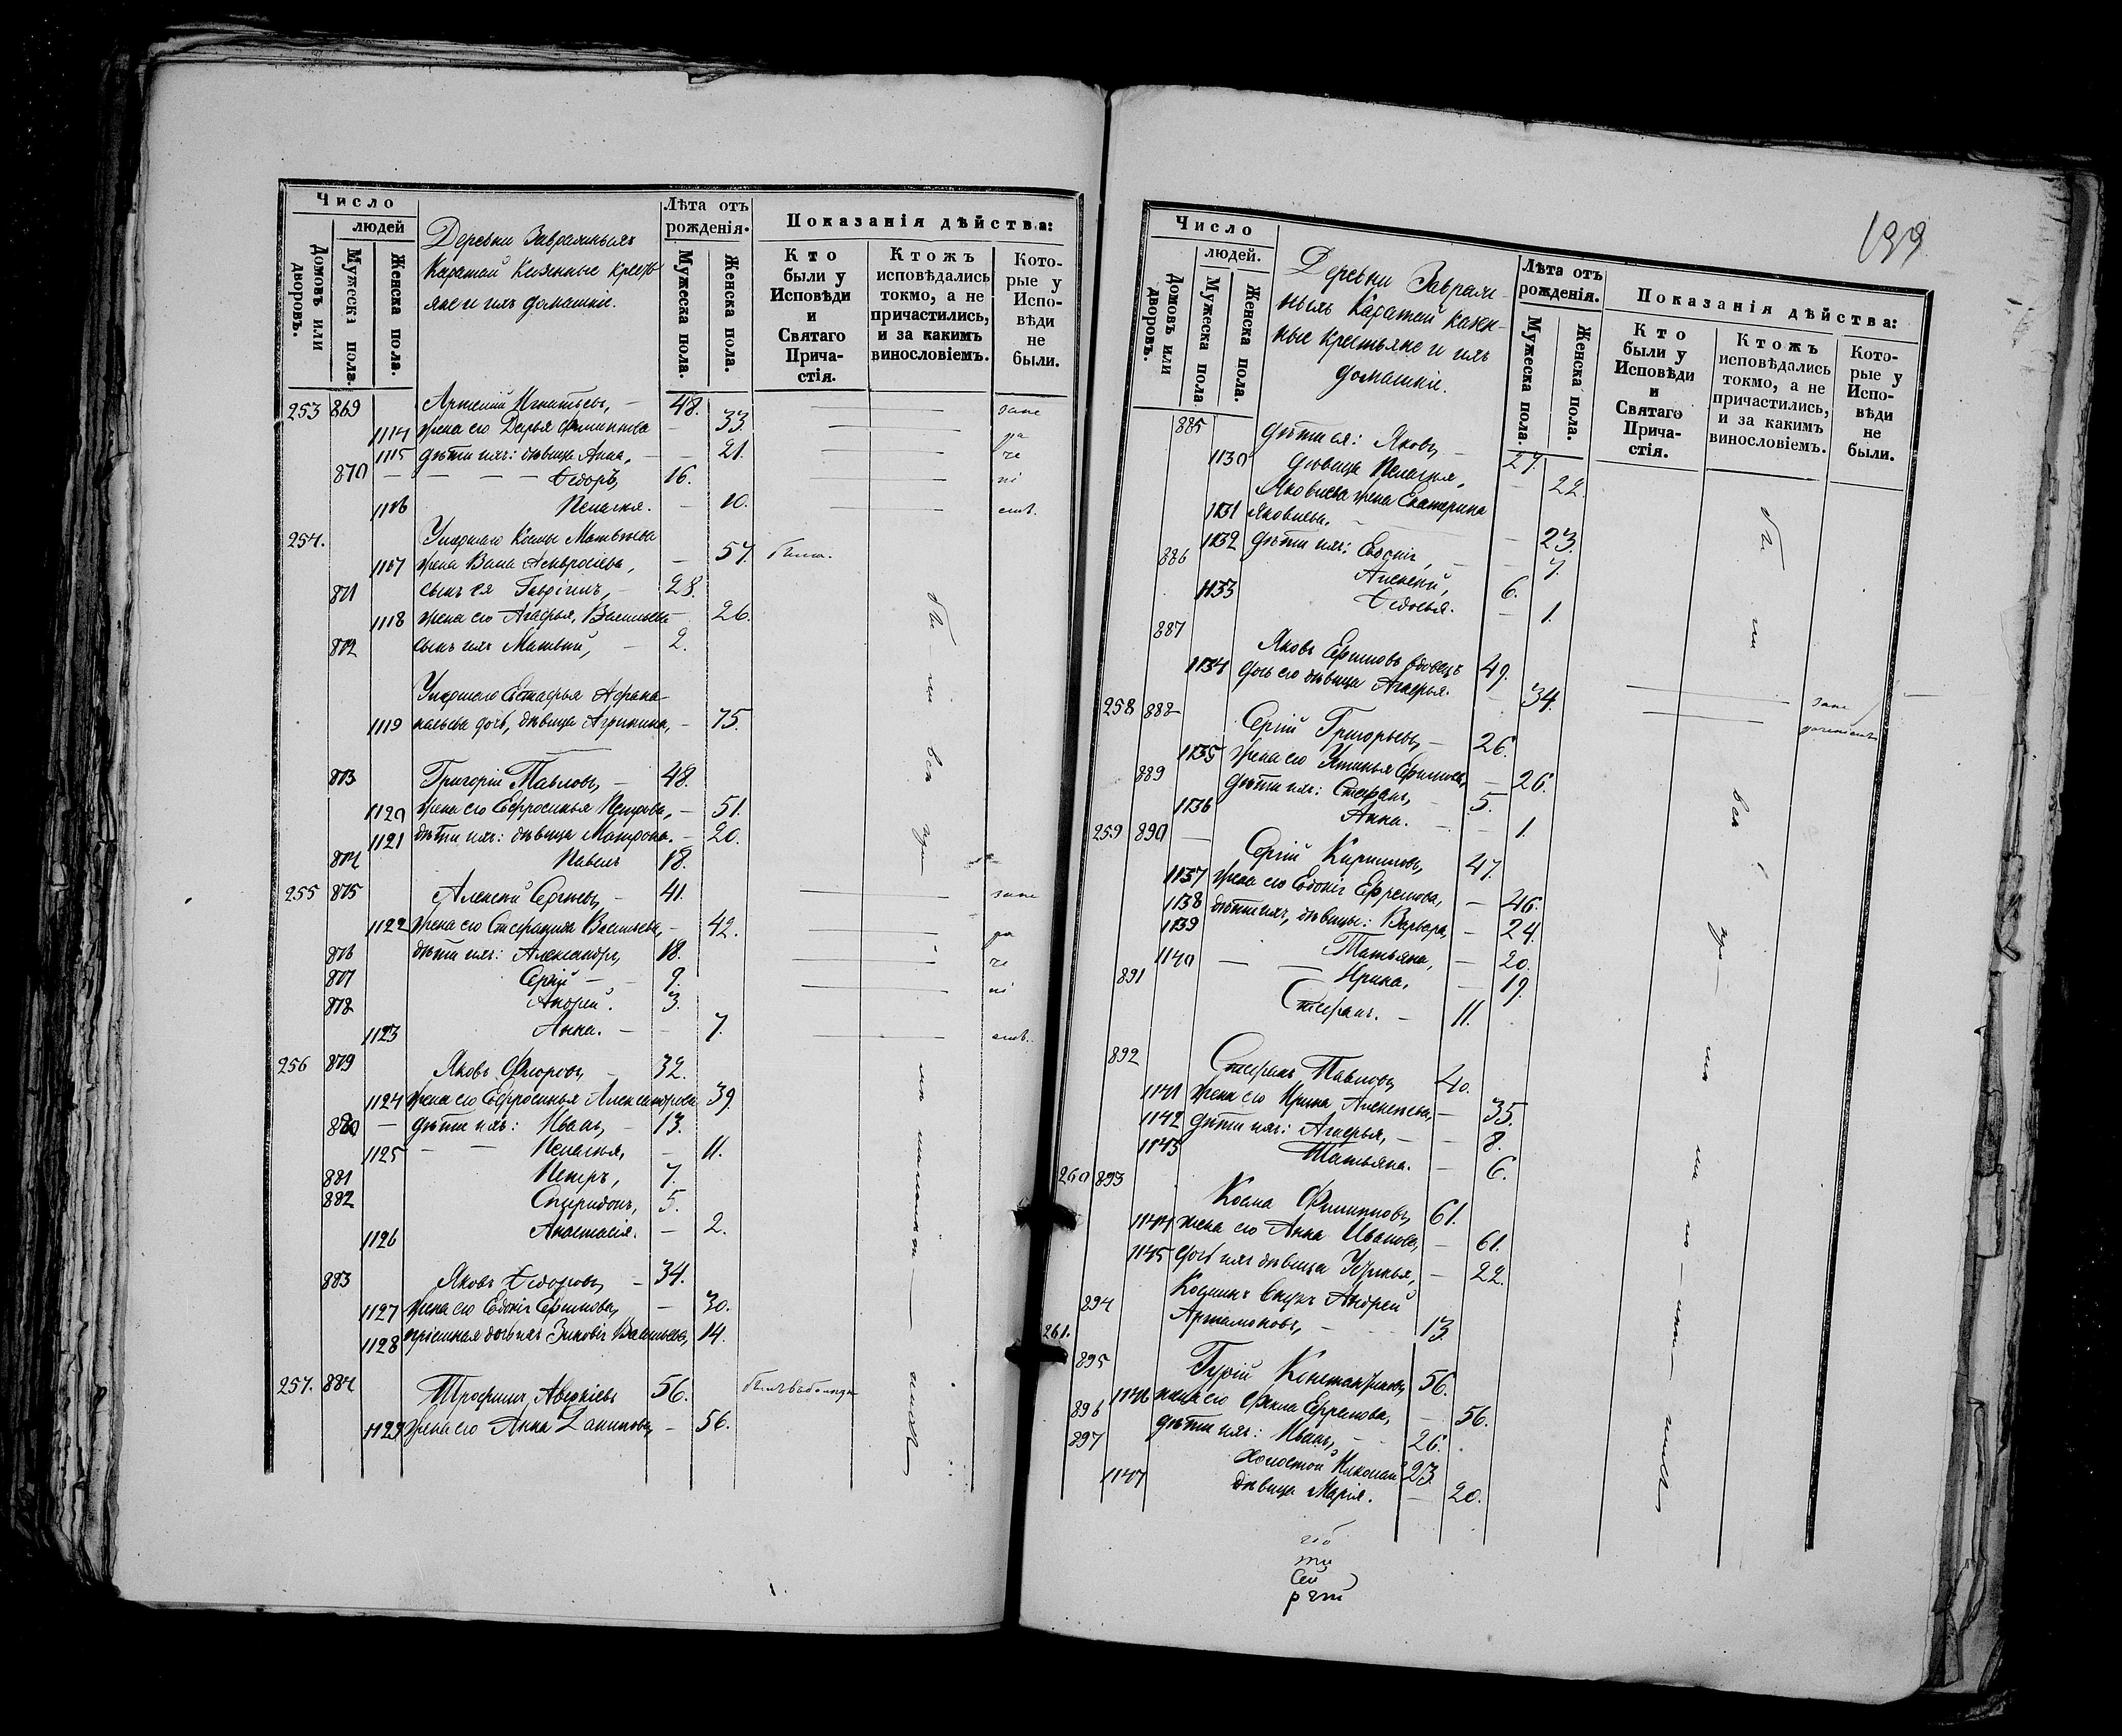 Число
людей
Домовъ или дворовъ.
Мужеска пола.
Женска пола.
Деревни Завражныхъ
Каратай Казенные кресть
яне и ихъ домашніе.
Лѣта отъ
рожденія.
Мужеска пола.
Женска пола.
Показанія дѣйства:
Кто
были у
Исповѣди
и
Святаго
Прича-
стія.
Ктожъ
исповѣдались
токмо, а не
причастились,
и за какимъ
винословіемъ.
Кото-
рые у
Испо-
вѣди
не
были.
253 869 Артемій Игнатьевъ, 48.
1114 жена его Дарья Филиппова 33
1115 дѣти ихъ: дѣвица Анна, 21.
870 Ѳедоръ, 16.
1116 Пелагея. 10.
254. Умершаго Космы Матвѣева
1117 жена Васса Амвросіева, 57. была.
871 сынъ ея Гавріилъ, 28.
1118 жена его Агафья Васильева 26.
872 сынъ ихъ Матвѣй, 2.
Умершаго Евстафья Афана-
1119 сьева дочь, дѣвица Агрипина, 75.
873 Григорій Павловъ, 48.
1120 жена его Ефросинья Петрова, 51.
1121 дѣти ихъ: дѣвица Матрона. 20.
874 Павелъ 18.
255 875 Алексѣй Сергѣевъ, 41.
1122 жена его Стефанида Васильева, 42.
876 дѣти ихъ: Александръ, 18.
877 Сергій 9.
878 Андрей. 3.
1123 Анна. 7.
256 879 Яковъ Флоровъ, 32.
1124 жена его Ефросинья Александрова 39.
880 дѣти ихъ: Иванъ, 13.
1125 Пелагея, 11.
881 Петръ, 7.
882 Спиридонъ, 5.
1126 Анастасія. 2.
883 Яковъ Ѳедоровъ, 34.
1127 жена его Евдокія Ефимова, 30.
1128 пріемная дочь ихъ Зиновія Васильева, 14.
257. 884 Трофимъ Аверкіевъ 56.
1129 жена его Анна Данилова, 56.
199
Число
людей.
Домовъ или дворовъ.
Мужеска пола
Женска пола.
Деревни Завраж-
ныхъ Каратай казен-
ные крестьяне и ихъ
домашніе.
Лѣта отъ
рожденія.
Мужеска пола.
Женска пола.
Показанія дѣйства:
Кто
были у
Исповѣди
и
Святаго
Прича-
стія.
Ктожъ
исповѣдались
токмо, а не
причастились,
и за какимъ
винословіемъ.
Кото-
рые у
Испо-
вѣди
не
были.
885 дѣти ея: Яковъ, 27.
1130 дѣвица Пелагея, 22.
Яковлева жена Екатерина
1131 Яковлева. 23.
1132 дѣти ихъ: Евдокія, 7.
886 Алексѣй, 6.
1133 Ѳедосья. 1.
887 Яковъ Ефимовъ вдовецъ 49.
1134 дочь его дѣвица Агафья. 34.
258 888 Сергій Григорьевъ, 26.
1135 жена его Устинья Ефимова, 26.
889 дѣти ихъ: Стефанъ, 5.
1136 Анна. 1.
259 890 Сергій Кирилловъ, 47.
1137 жена его Евдокія Ефремова, 46.
1138 дѣти ихъ, дѣвицы: Варвара, 24.
1139 Татьяна, 20.
1140 Ирина, 19.
891 Стефанъ. 11.
892 Стефанъ Павловъ 40.
1141 жена его Ирина Алексѣева, 35.
1142 дѣти ихъ: Агафья, 8.
1143 Татьяна. 6.
260 893 Косма Филипповъ, 61.
1144 жена его Анна Иванова, 61.
1145 дочь ихъ дѣвица 22.
894 Косминъ внукъ Андрей
Артамоновъ, 13.
261. 895 Гурій Константиновъ 56.
1146 жена его Фекла Ефремова, 56.
896 дѣти ихъ: Иванъ, 26.
897 холостой Николай 23.
1147 дѣвица Марія. 20.